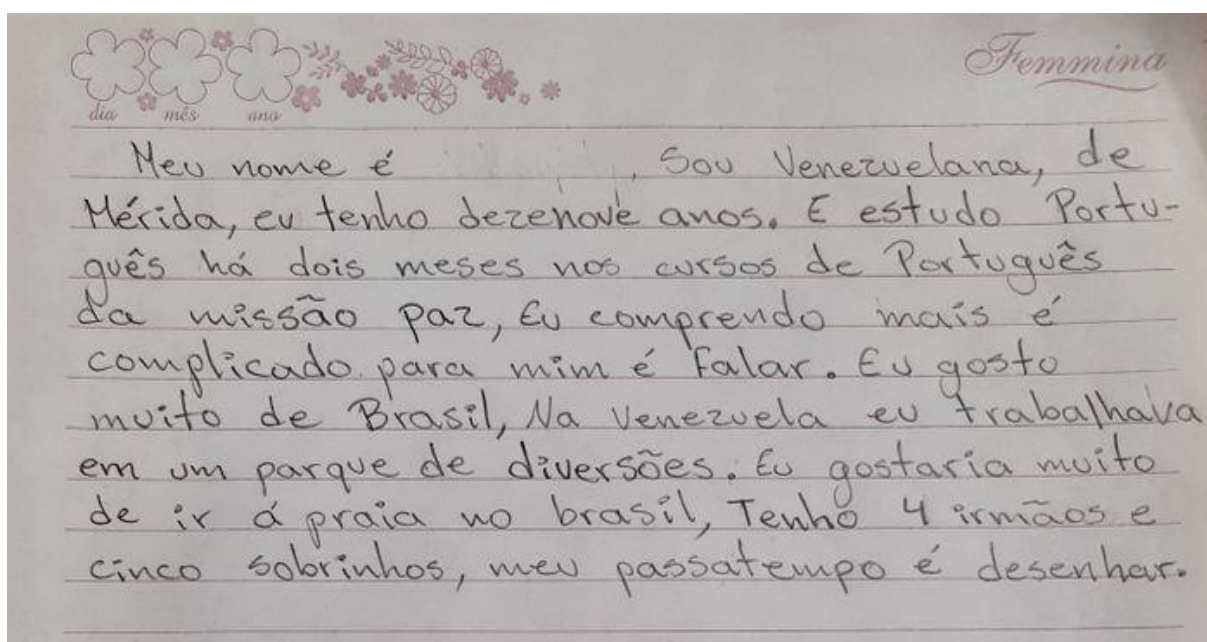 Femmina
dia mês ano
Meu nome é , Sou Venezuelana, de
Mérida, eu tenho dezenove anos. E estudo Portu-
guês há dois meses nos cursos de Português
da missão paz, Eu comprendo mais é
complicado para mim é falar. Eu gosto
muito de Brasil, Na Venezuela eu trabalhava
em um parque de diversões. Eu gostaria muito
de ir á praia no brasil, Tenho 4 irmãos e
cinco sobrinhos, meu passatempo é desenhar.